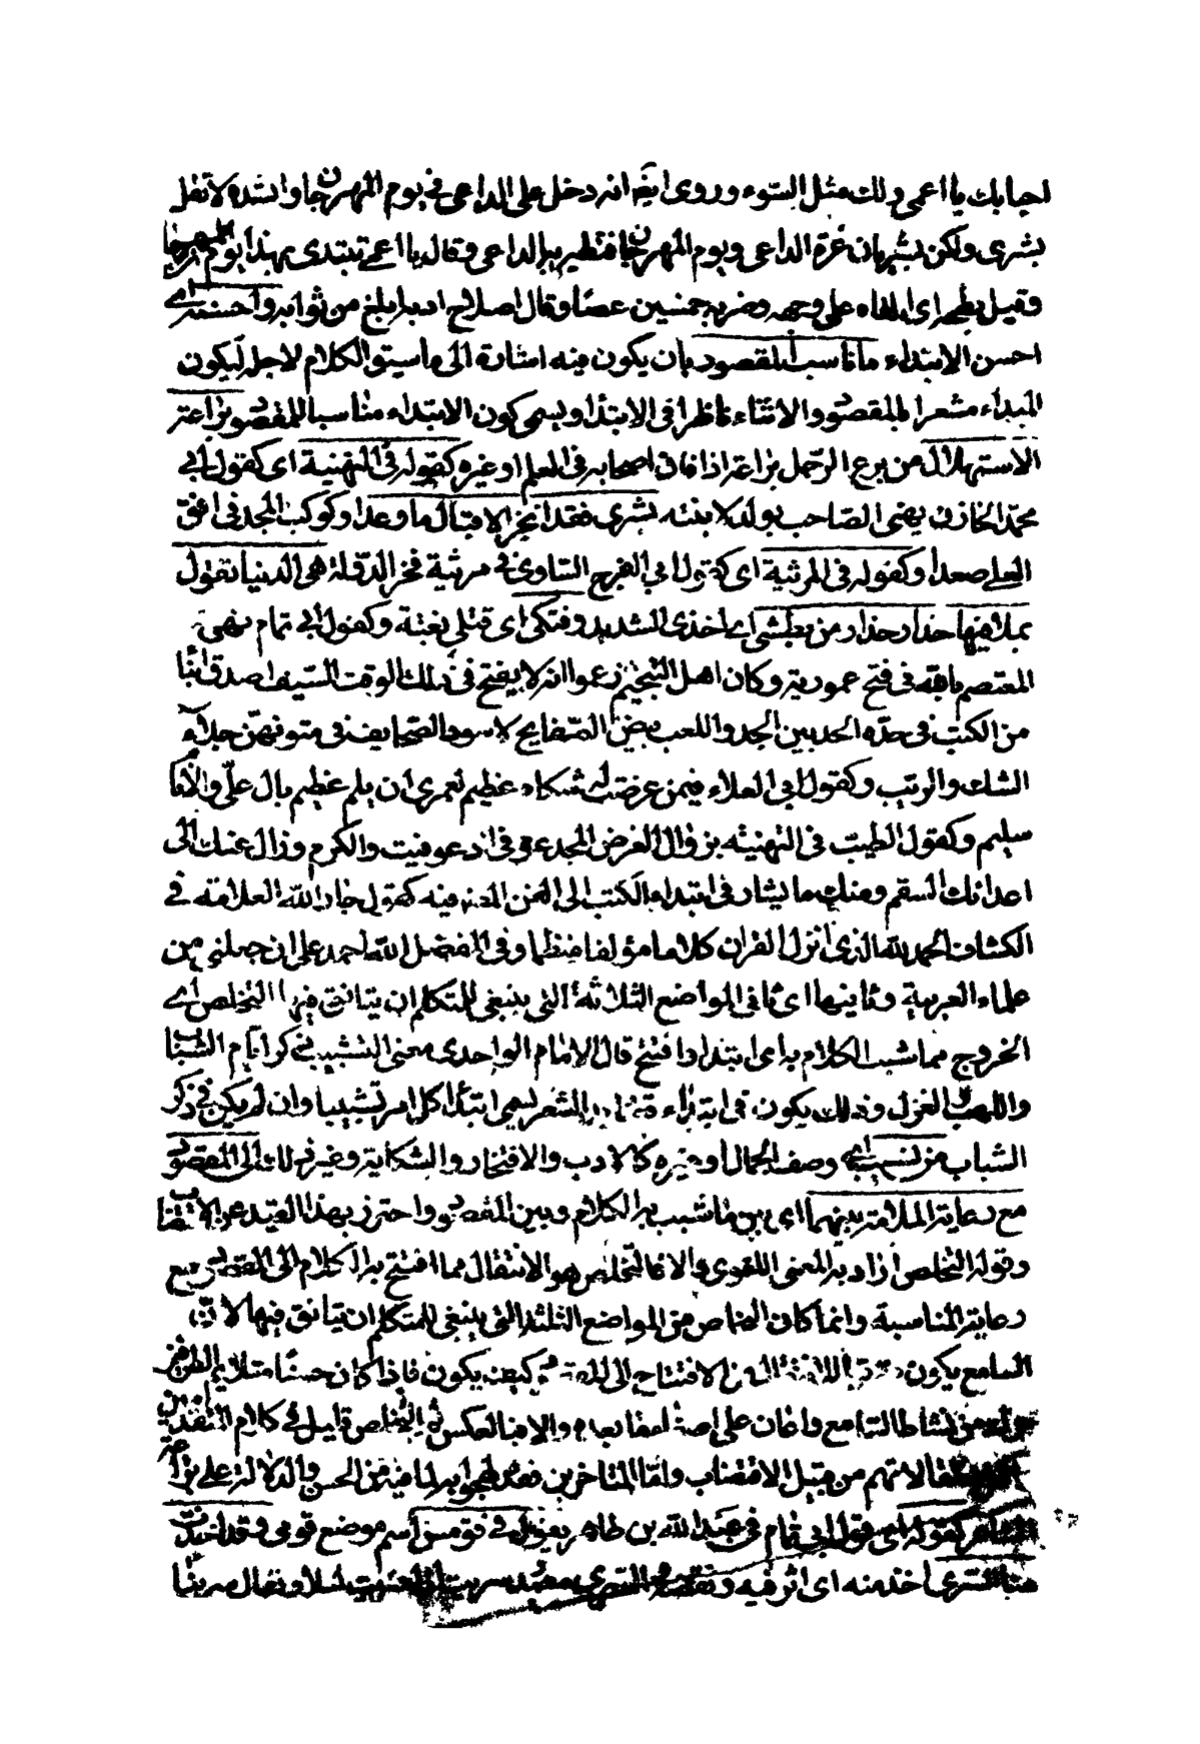 احبابك يا اعمى ولك مثل السوء وروى ايضا انه دخل على الداعى فى يوم المهرجان وانشده لا تقل
بشرى ولكن بشريان غرة الداعى ويوم المهرجان فتطير به الداعى وقال يا اعمى تبتدى بهذا يوم المهرجان
وقيل بطحه اى القاه على وجهه وضربه خمسين عصا وقال اصلاح ادبه ابلغ من ثوابه واحسنه اى
احسن الابتداء ما ناسب المقصود بان يكون فيه اشارة الى ما سيق الكلام لاجله ليكون
المبداء مشعرا بالمقصود والانتهاء ناظرا فى الابتداء ويسمى كون الابتداء مناسبا للمقصود براعة
الاستهلال من برع الرجل براعة اذا فاق اصحابه فى العلم او غيره كقوله فى التهنية اى كقول ابى
محمد الخازن يهنى الصاحب بولد لابنته بشرى فقد انجز الاقبال ما وعدا وكوكب المجد فى افق
العلى صعدا وكقوله فى المرثية اى كقول ابى الفرج الساوى فى مرثية فخر الدولة هى الدنيا تقول
بملا فيها حذار حذار من بطشى اى اخذى الشديد وفتكى اى قتلى بغتة وكقول ابى تمام يهنى
المعتصم بالله فى فتح عمورية وكان اهل التنجيم زعموا انه لا يفتح فى ذلك الوقت السيف اصدق انباء
من الكتب فى حده الحد بين الجد واللعب بيض الصفايح لا سود الصحايف فى متونهن جلاء
الشك والريب وكقول ابى العلاء فيمن عرضت له شكاة عظيم لعمرى ان يلم عظيم بال على والانام
سليم وكقول الطيب فى التهنيئه بزوال المرض المجد عوفى اذ عوفيت والكرم وزال عنك الى
اعدائك السقم ومنه ما يشار فى ابتداء الكتب الى الفن المصنف فيه كقول جار الله العلامة فى
الكشاف الحمد لله الذى انزل القران كلاما مؤلفا منظما وفى المفصل الله احمد على ان جعلنى من
علماء العربية وثانيها اى ثانى المواضع الثلاثة التى ينبغى للمتكلم ان يتانق فيها التخلص اى
الخروج مما شبب الكلام به اى ابتدا وافتتح قال الامام الواحدى معنى التشبيب ذكر ايام الشباب
واللهو والغزل وذلك يكون فى ابتداء الشعر يسمى ابتداء كل امر تشبيبا وان لم يكن فى ذكر
الشباب من نسيب اى وصف الجمال او غيره كالادب والافتخار والشكاية وغير ذلك الى المقصود
مع رعاية الملائمة بينهما اى بين ما شبب به الكلام وبين المقصود واحترز بهذا القيد عن الاقتضاب
وقوله التخلص اراد به المعنى اللغوى والا فالتخلص هو الانتقال مما افتتح به الكلام الى المقصود مع
رعاية المناسبة وانما كان التخلص من المواضع الثلثة التى ينبغى للمتكلم ان يتانق فيها لان
السامع يكون الانتقال من الافتتاح الى المقصود كيف يكون فاذا كان حسنا متلايم الطرفين
حرك من نشاط السامع واعان على اصغاء ما بعده والا فبالعكس ثم التخلص قليل فى كلام المتقدمين
انتقالاتهم من قبيل الاقتضاب واما المتاخرين فقد لهجوا به لما فيه من الحسن والدلالة على براعة
الشاعر كقوله اى قول ابى تمام فى عبد الله بن طاهر يقول فى قومس اسم موضع قومى وقد اخذت
منا السرى اخذ منه اى اثر فيه